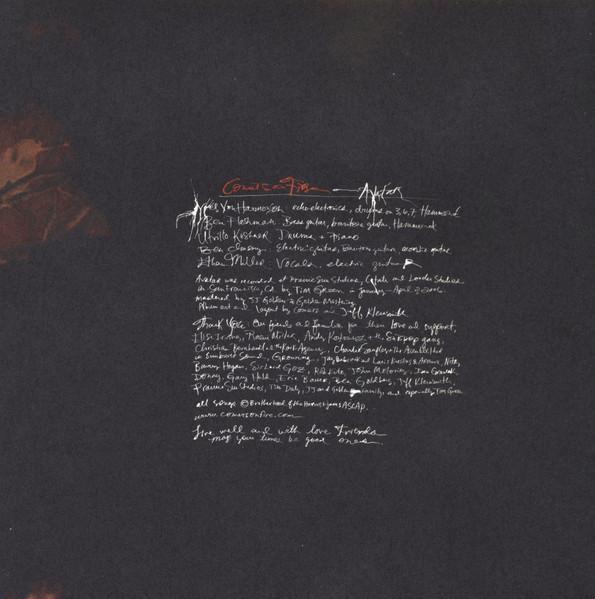 Comets on Fire — Avatar
Noel Von Harmonson: echoelectronics, drums on 3, 6, 7, Hammond
Ben Flashman: Bass guitar, baritone guitar, Hammond
Utrillo Kushner: Drums + Piano
Ben Chasny: Electric guitar, baritone guitar, acoustic guitar
Ethan Miller: Vocals, electric guitar
Avatar was recorded at Prairie Sun Studios, Cotati and Louder Studios
in San Francisco, Ca by Tim Green in January – April of 2006
mastered by JJ Golden @ Golden Mastering
and layout by Comets and Jeff Kleinsmith
Thank You: Our friends and families for their love and support,
Elisi Irving, Andy + the SUBPOP gang,
Christian Bernhardt and the Kork Agency,
in Sunburst Sound, Growing, and
Barry Hogan, John Moloney, Ian
Denny, Gary Hull, Eric Bauer, Ben Goldberg, Jeff Kleinsmith,
Prairie Sun Studios, Tim Daly, JJ and Golden family, and especially Tim Green
all songs © Brotherhood of the Harvest Jams ASCAP.
www.cometsonfire.com
Live well and with love Friends
may your times be good ones